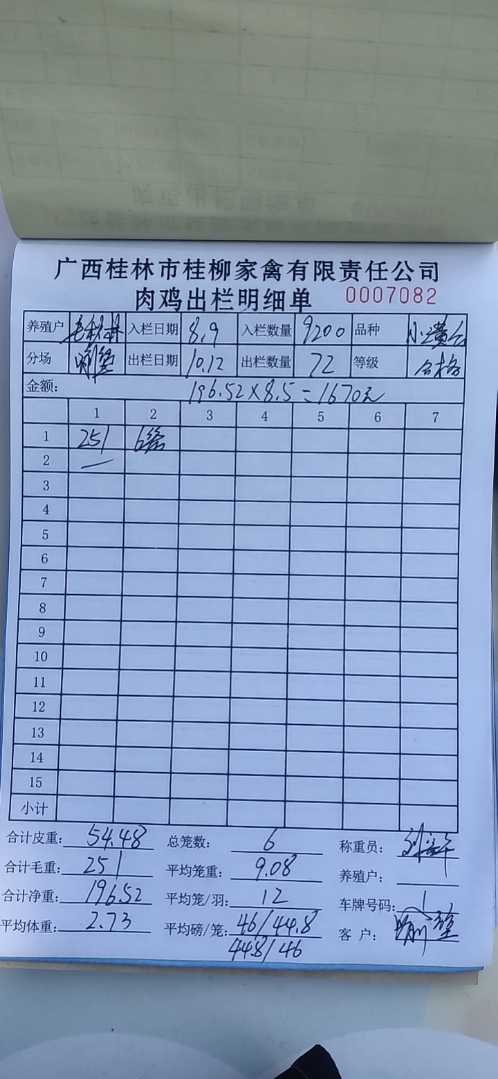 广西桂林市桂柳家禽有限责任公司
肉鸡出栏明细单 0007082
养殖户 入栏日期 8.9 入栏数量 9200 品种
分场 出栏日期 10.12 出栏数量 72 等级 合格
金额: 196.52×8.5=1670元
1 2 3 4 5 6 7
1 251 6笼
2 —
3
4
5
6
7
8
9
10
11
12
13
14
15
小计
合计皮重: 54.48 总笼数: 6 称重员:
合计毛重: 251 平均笼重: 9.08 养殖户:
合计净重: 196.52 平均笼/羽: 12 车牌号码: 1
平均体重: 2.73 平均磅/笼: 46/44.8 客户:
44.8/46